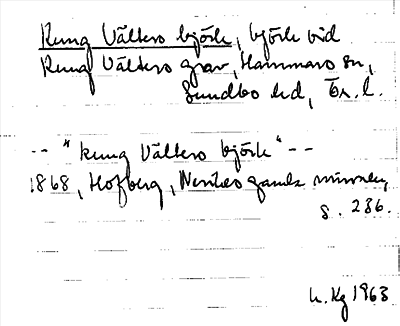 Kung Välters björk, björk vid
Kung Välters grav, Hammars sn,
Sundbo hd, Ör. l.
-- "kung Välters björk" --
1868, Hofberg, Nerikes gamla minnen,
s. 286.
h. Kg 1963